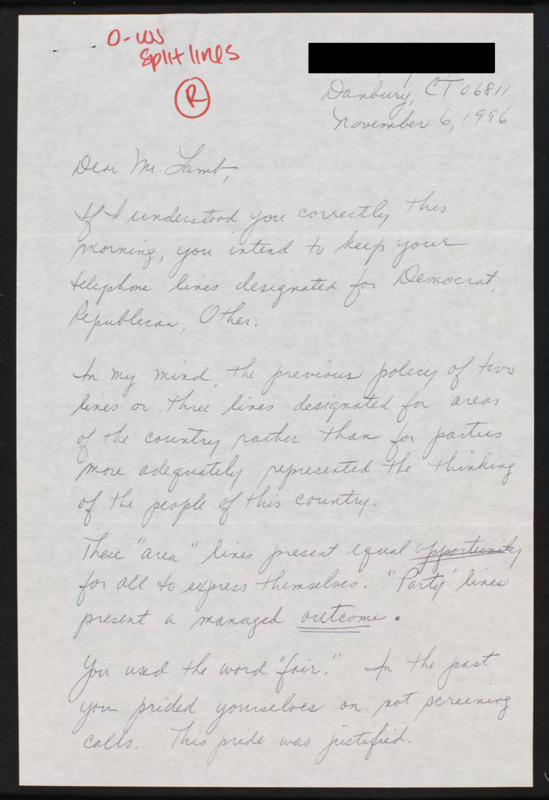 O-WJ
Split lines
R
Danbury, CT 06811
November 6, 1996
Dear Mr. Lamb,
If I understood you correctly this
morning, you intend to keep your
telephone lines designated for Democrat,
Republican, Other.
In my mind, the previous policy of two
lines or three lines designated for areas
of the country rather than for parties
more adequately represented the thinking
of the people of this country.
These "area" lines present equal opportunity
for all to express themselves. "Party" lines
present a managed outcome.
You used the word "fair." In the past
you prided yourselves on not screening
calls. This pride was justified.